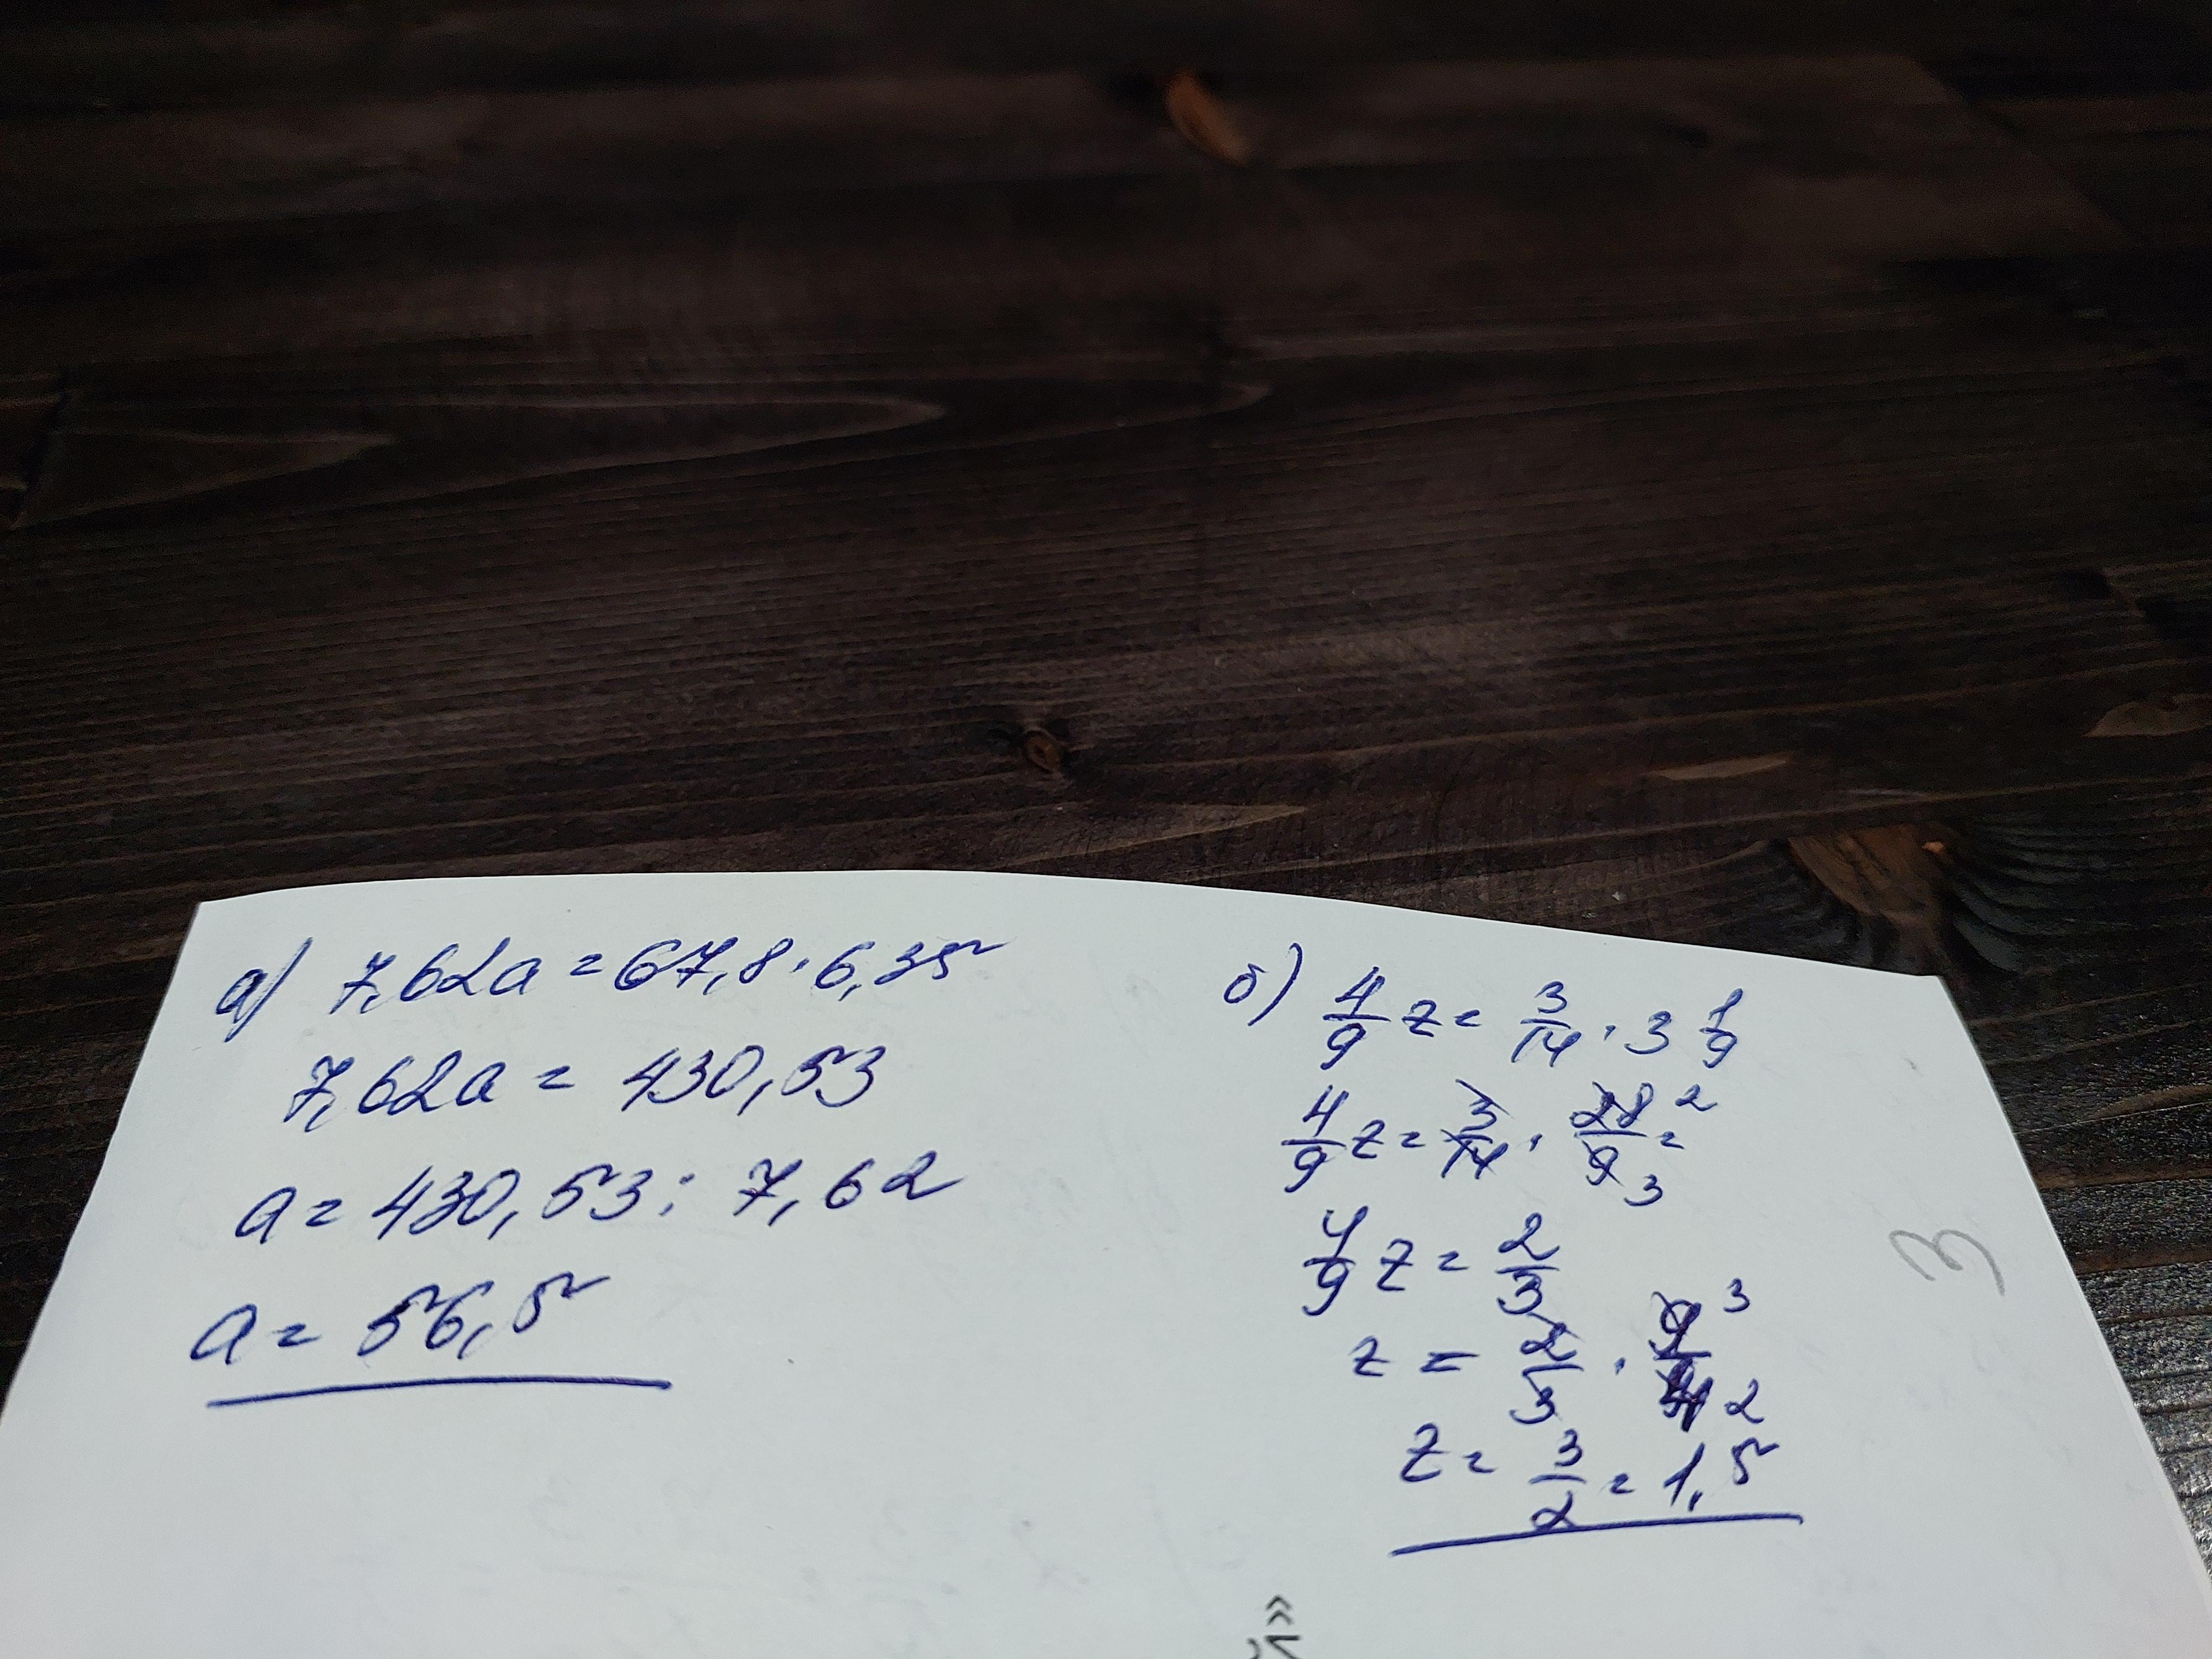 а) 7,62a = 67,8 · 6,35
7,62a = 430,53
a = 430,53 : 7,62
a = 56,5
б) 4/9 z = 3/14 · 3 1/9
4/9 z = 3/14 · 28/9 = 2 3
4/9 z = 2/3
z = 2/3 · 9/4 3 2
z = 3/2 = 1,5
3